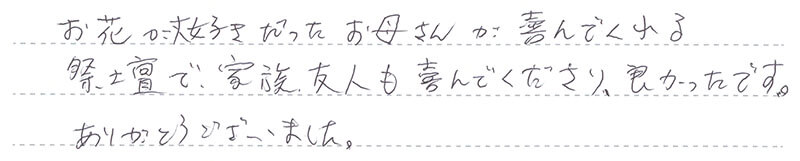 お花が大好きだったお母さんが喜んでくれる
祭壇で、家族、友人も喜んでくださり、良かったです。
ありがとうございました。